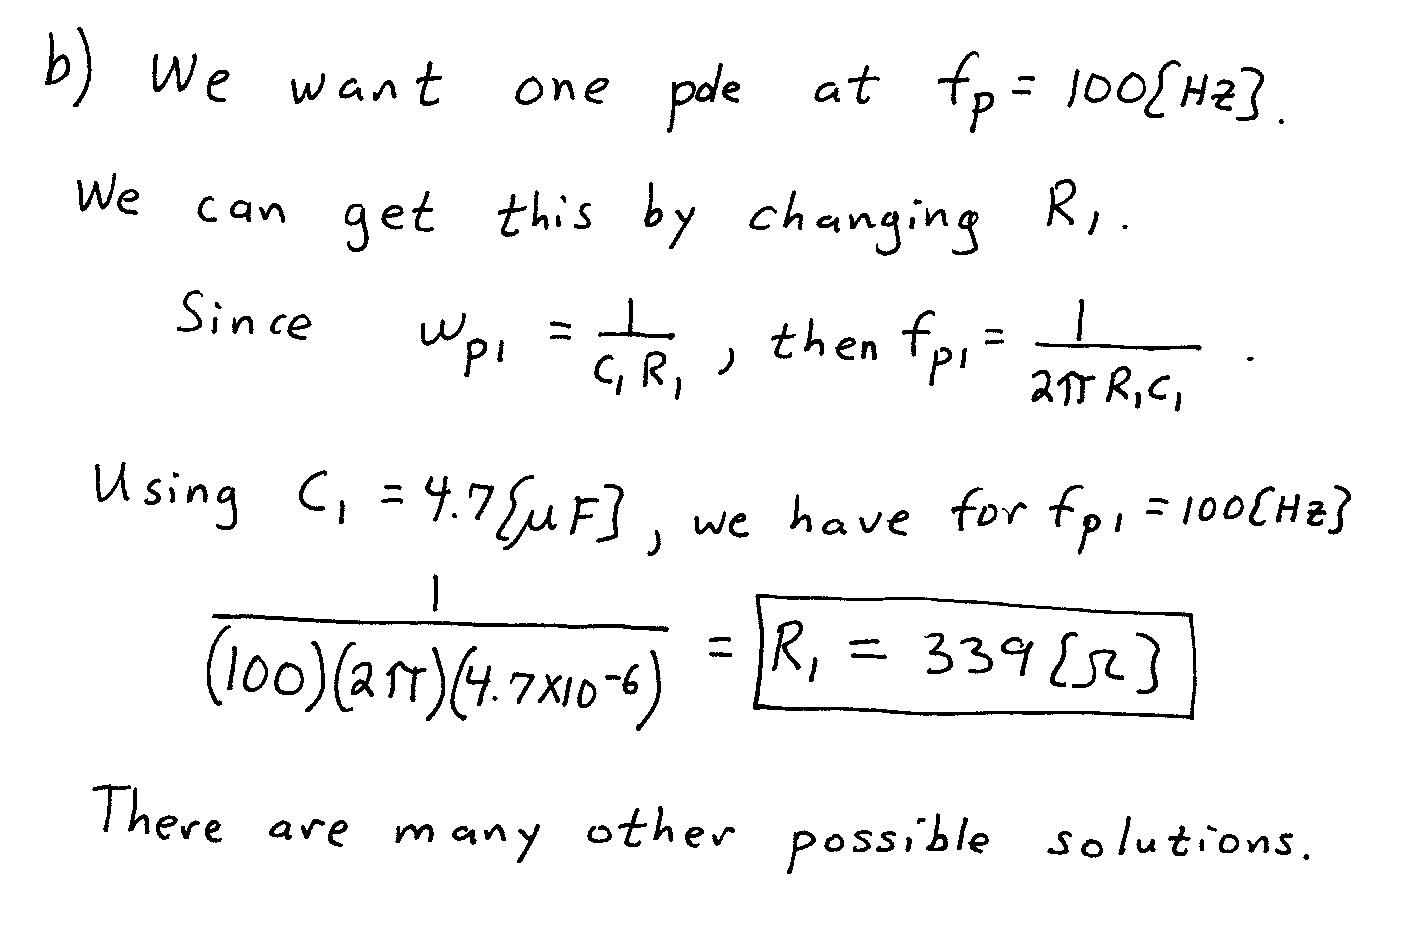 b) We want one pole at fp = 100{Hz}.
We can get this by changing R1.
Since ωp1 = 1/(C1 R1), then fp1 = 1/(2π R1C1).
Using C1 = 4.7{μF}, we have for fp1 = 100{Hz}
1/((100)(2π)(4.7x10^-6)) = R1 = 339{Ω}
There are many other possible solutions.